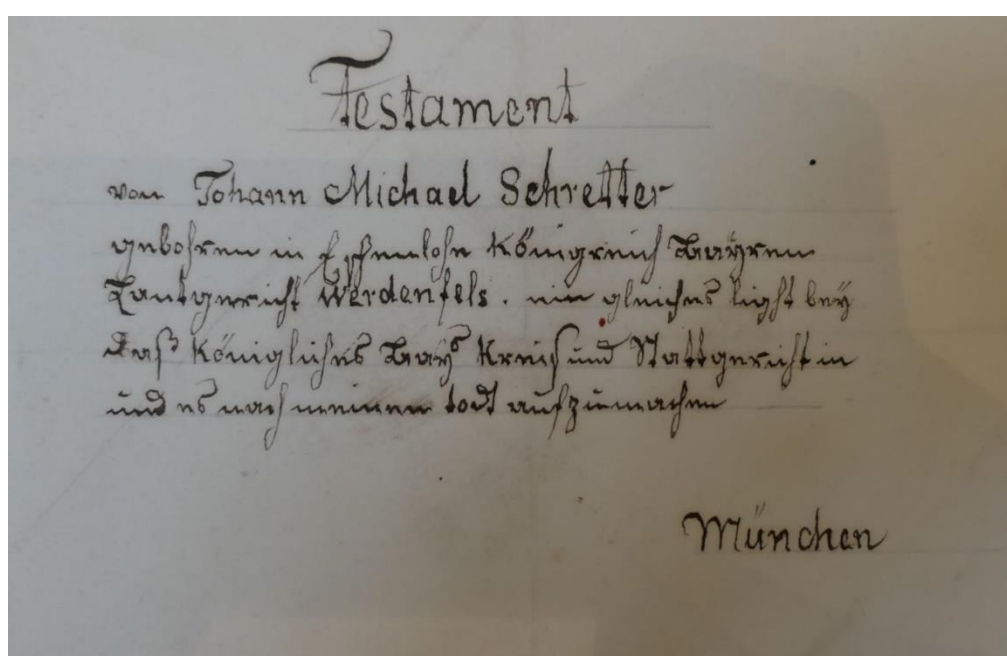 Testament
von Johann Michael Schretter
gebohren in Eschenlohe Königreich Bayren
Lantgericht Werdenfels. ein gleiches light bey
daß Königliches Bays Kreis und Stattgericht in
und es nach meinem todt aufzumachen
München